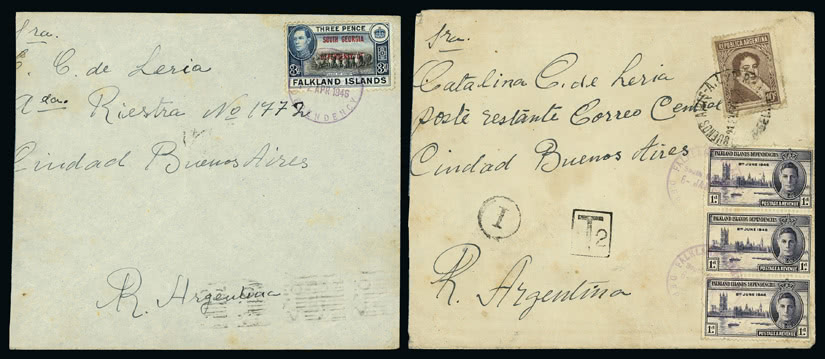 Sra.
C. de Leria
Avda. Riestra No 1772
Ciudad Buenos Aires
R. Argentina
THREE PENCE
SOUTH GEORGIA
3d 3d
FALKLAND ISLANDS
APR 1946
Sra.
Catalina C. de Leria
Poste restante Correo Central
Ciudad Buenos Aires
R. Argentina
REPUBLICA ARGENTINA
BUENOS AIRES
T
T 2
FALKLAND ISLANDS DEPENDENCIES
8TH JUNE 1946
1d 1d
POSTAGE & REVENUE
FALKLAND ISLANDS DEPENDENCIES
8TH JUNE 1946
1d 1d
POSTAGE & REVENUE
FALKLAND ISLANDS DEPENDENCIES
8TH JUNE 1946
1d 1d
POSTAGE & REVENUE